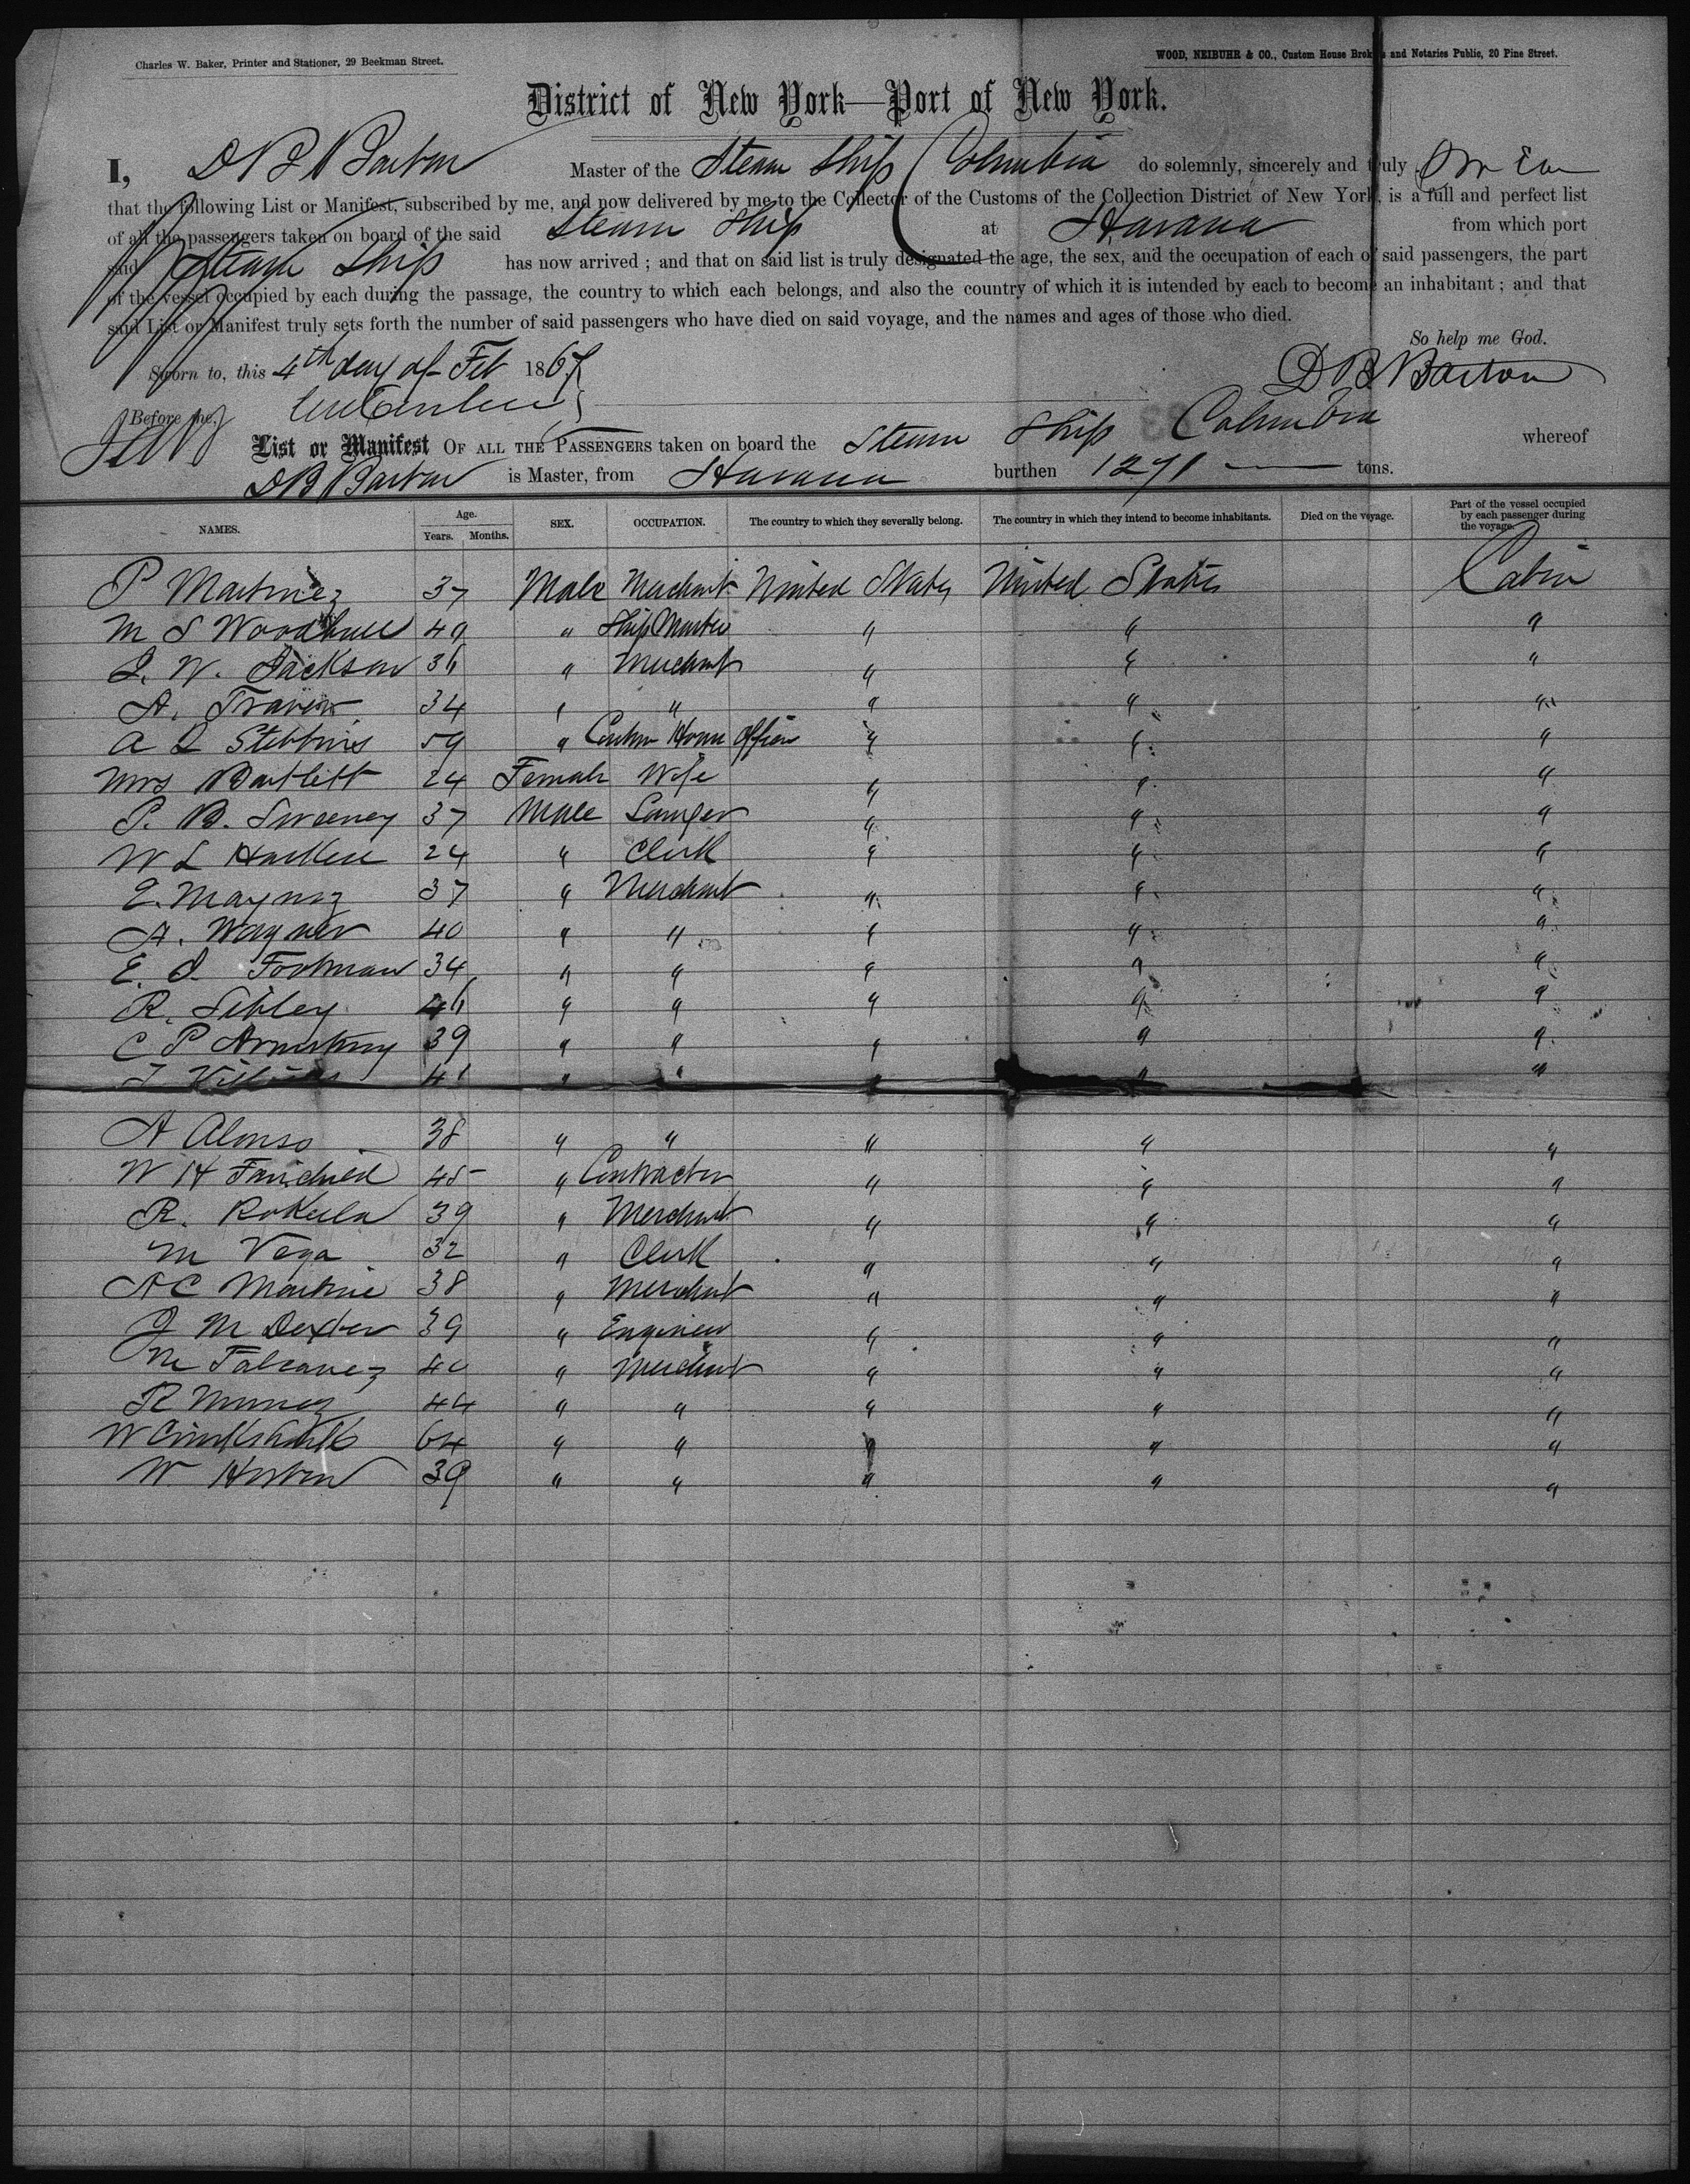 Charles W. Baker, Printer and Stationer, 29 Beekman Street.
WOOD, NEIBUHR & CO., Custom House Brokers and Notaries Public, 20 Pine Street.
District of New York—Port of New York.
I, D B Barton Master of the Steam Ship Columbia do solemnly, sincerely and truly
that the following List or Manifest, subscribed by me, and now delivered by me to the Collector of the Customs of the Collection District of New York, is a full and perfect list
of all the passengers taken on board of the said Steam Ship at Havana from which port
said Steam Ship has now arrived ; and that on said list is truly designated the age, the sex, and the occupation of each of said passengers, the part
of the vessel occupied by each during the passage, the country to which each belongs, and also the country of which it is intended by each to become an inhabitant ; and that
said List or Manifest truly sets forth the number of said passengers who have died on said voyage, and the names and ages of those who died.
So help me God.
Sworn to, this 4th day of Feb 1867
D B Barton
Before me,
List or Manifest OF ALL THE PASSENGERS taken on board the Steam Ship Columbia whereof
D B Barton is Master, from Havana burthen 1271 — tons.
NAMES. Age. Years. Months. SEX. OCCUPATION. The country to which they severally belong. The country in which they intend to become inhabitants. Died on the voyage. Part of the vessel occupied by each passenger during the voyage.
P Martinez 37 Male Merchant United States United States Cabin
M S Woodhull 49 " Ship Master " " "
J. W. Jackson 36 " Merchant " " "
A. 34 " " " " "
A L Stebbins 59 " Custom House Officer " " "
Mrs Bartlett 24 Female Wife " " "
P. B. Sweeney 37 Male Lawyer " " "
W L 24 " Clerk " " "
E. 37 " Merchant " " "
A. Wagner 40 " " " " "
E. 34 " " " " "
R. Sibley 46 " " " " "
C P Armstrong 39 " " " " "
41 " " " " "
A Alonso 38 " " " " "
W H Fairchild 45 " Contractor " " "
R. 39 " Merchant " " "
M Vega 32 " Clerk " " "
A C 38 " Merchant " " "
J M Dexter 39 " Engineer " " "
M 40 " Merchant " " "
R 44 " " " " "
W Cruikshank 64 " " " " "
W 39 " " " " "